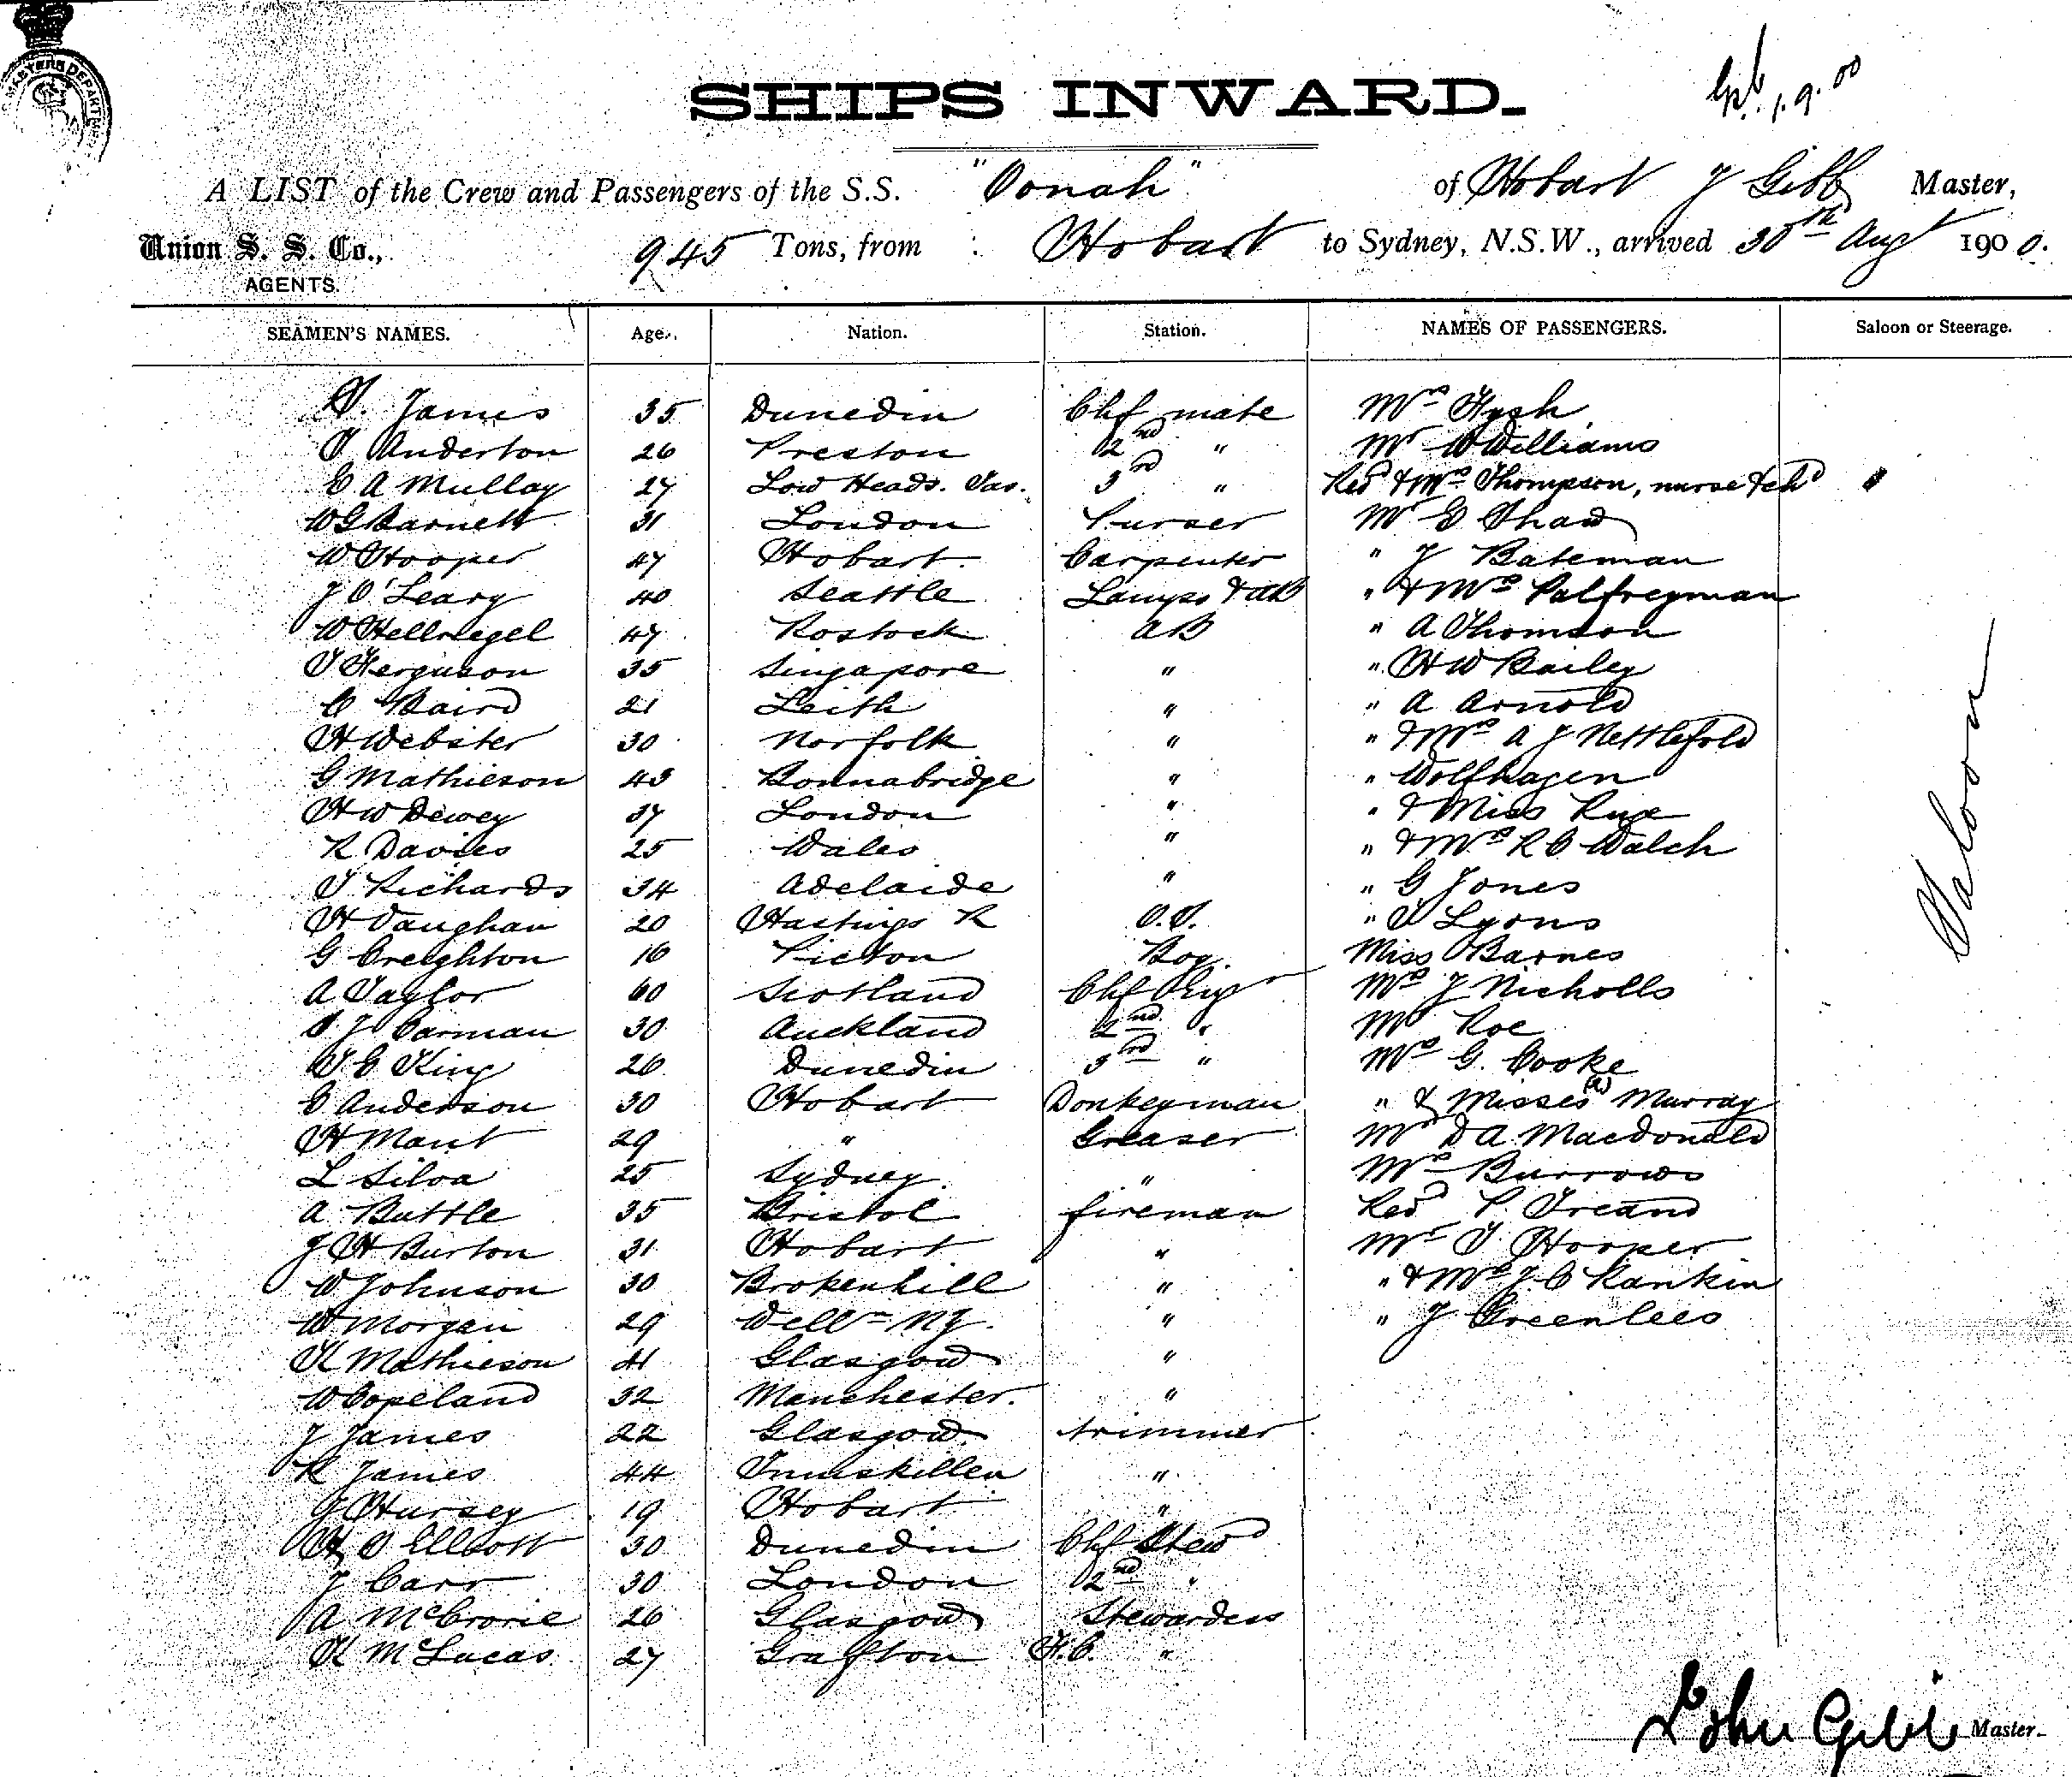 SHIPS INWARD.
1.9.00
A LIST of the Crew and Passengers of the S.S. "Oonah" of Hobart J Gibb Master,
Union S. S. Co., 945 Tons, from Hobart to Sydney, N.S.W., arrived 30th Augt 1900.
AGENTS.
SEAMEN'S NAMES. Age. Nation. Station. NAMES OF PASSENGERS. Saloon or Steerage.
S. James 35 Dunedin Chf mate Mrs Fysh
T Anderton 26 Preston 2nd " Mr W Williams
E A Mullay 27 Low Heads. Tas. 3rd " Revd & Mrs Thompson, nurse & chd
W G Barnett 31 London Purser Mr E Shaw
W Hooper 47 Hobart Carpenter " J Bateman
J O'Leary 40 Seattle Lamps & AB " & Mrs Palfreyman
W Hellriegel 47 Rostock AB " A Thomson
T Ferguson 35 Singapore " " H W Bailey
C Baird 21 Leith " " A Arnold
H Webster 30 Norfolk " " & Mrs A J Nettlefold
G Mathieson 43 Bonnabridge " " Wolfhagen
H W Dewey 37 London " " & Miss Rue
R Davies 25 Wales " " & Mrs R C Walch
T Richards 34 Adelaide " " G Jones
H Vaughan 20 Hastings R O.S. " T Lyons
G Creighton 16 Picton Boy. Miss Barnes
A Taylor 60 Scotland Chf Eng Mrs J Nicholls
J Carman 30 Auckland 2nd " Mr Roe
T C King 26 Dunedin 3rd " Mrs G. Cooke
C Anderson 30 Hobart Donkeyman " & Misses (2) Murray
H Mant 29 " Greaser Mr D A Macdonald
L Silva 25 Sydney " Mrs Burrows
A Buttle 35 Bristol fireman Revd P. Treand
J H Burton 31 Hobart " Mr T. Hooper
W Johnson 30 Brokenhill " " & Mrs J C Rankin
W Morgan 29 Well-n NZ. " " J Greenlees
K Mathieson 41 Glasgow "
W Copeland 32 Manchester. "
J James 22 Glasgow trimmer
R James 44 Inniskillen "
G Hursey 19 Hobart "
H O Elliott 30 Dunedin Chf Stewd
J Carr 30 London 2nd "
A McCrorie 26 Glasgow Stewardess
K McLucas 27 Grafton F.C. "
Saloon
John Gibb Master.